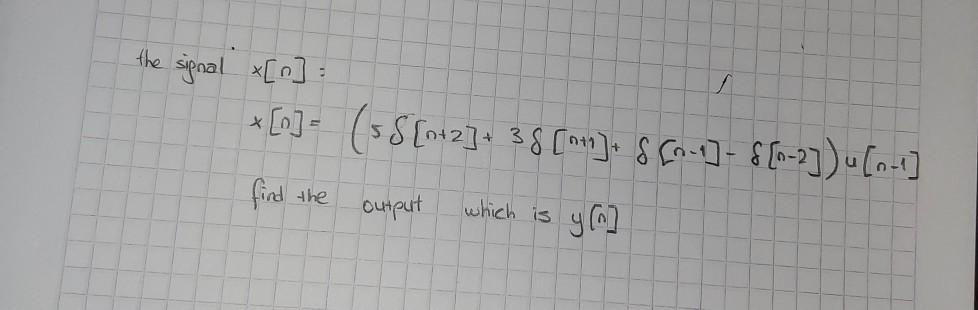 the signal x[n] :
x[n] = (5δ[n+2] + 3δ[n+1] + δ[n-1] - δ[n-2]) u[n-1]
find the output which is y[n]